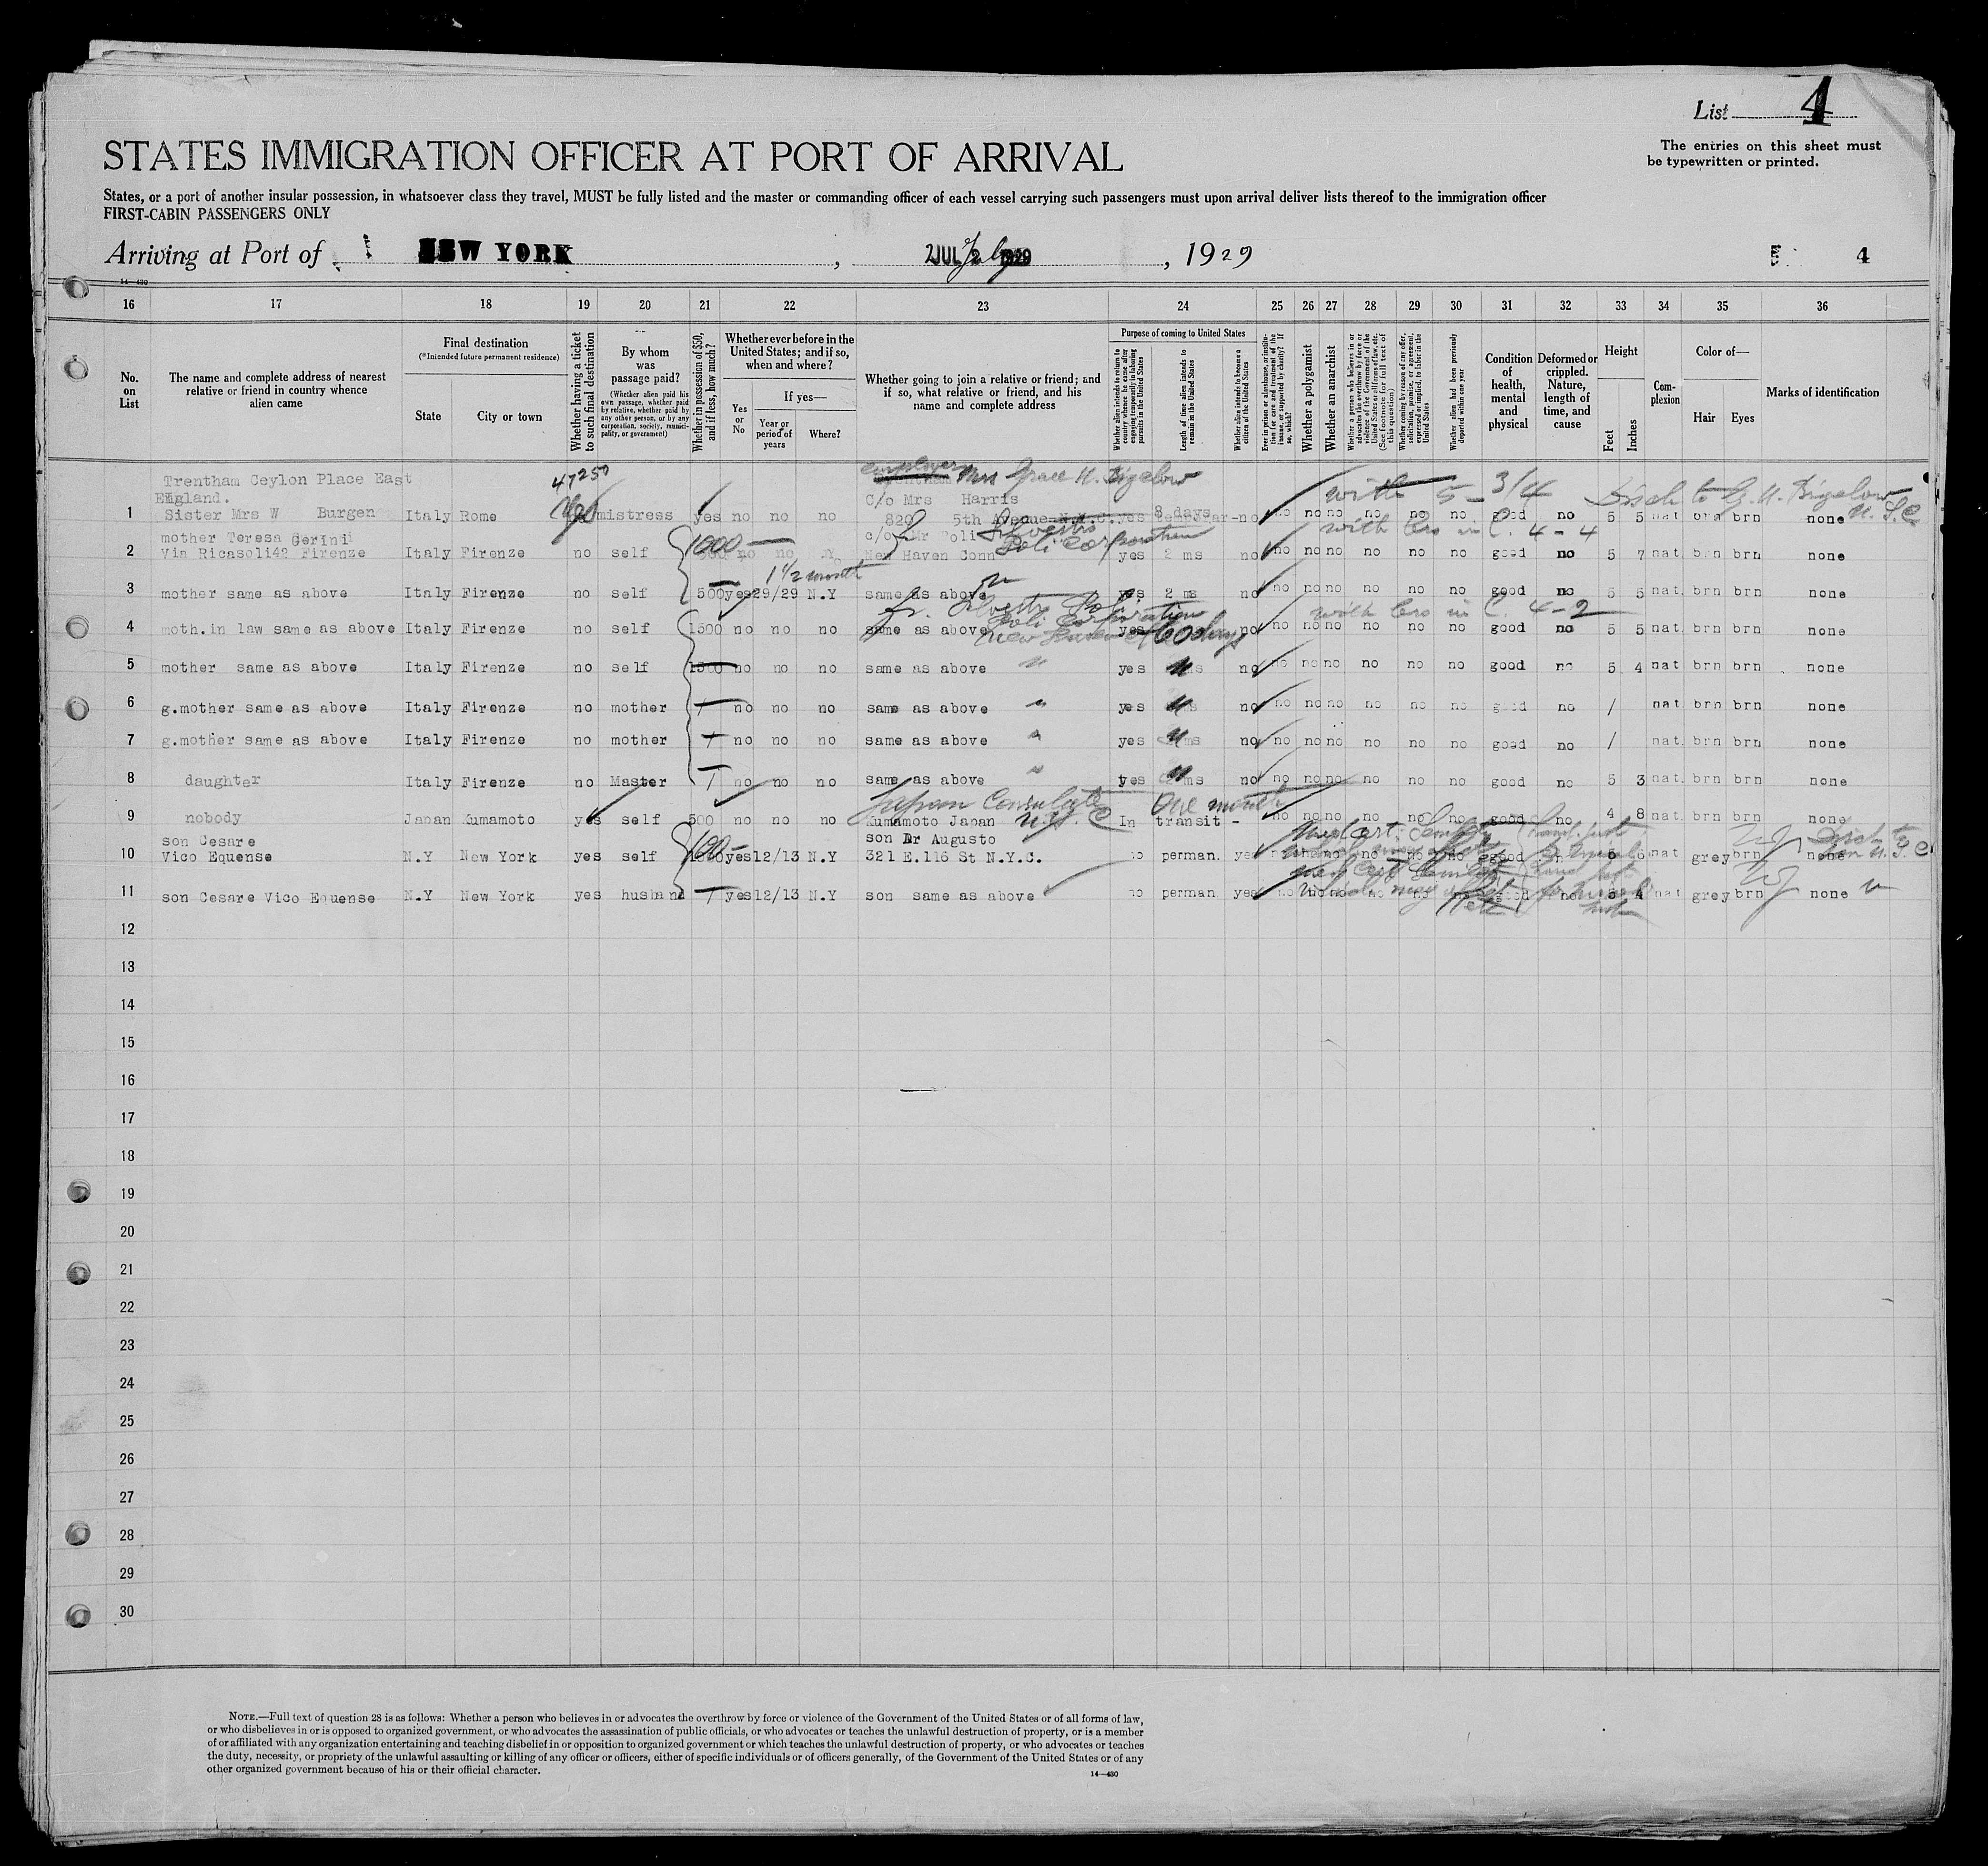 List 4
The entries on this sheet must
be typewritten or printed.
STATES IMMIGRATION OFFICER AT PORT OF ARRIVAL
States, or a port of another insular possession, in whatsoever class they travel, MUST be fully listed and the master or commanding officer of each vessel carrying such passengers must upon arrival deliver lists thereof to the immigration officer
FIRST-CABIN PASSENGERS ONLY
Arriving at Port of NEW YORK, July 2, 1929 4
14—430
16 17 18 19 20 21 22 23 24 25 26 27 28 29 30 31 32 33 34 35 36
No. on List
The name and complete address of nearest relative or friend in country whence alien came
Final destination
(*Intended future permanent residence)
State
City or town
Whether having a ticket to such final destination
By whom was passage paid?
(Whether alien paid his own passage, whether paid by relative, whether paid by any other person, or by any corporation, society, municipality, or government)
Whether in possession of $50, and if less, how much?
Whether ever before in the United States; and if so, when and where?
Yes or No
If yes—
Year or period of years
Where?
Whether going to join a relative or friend; and if so, what relative or friend, and his name and complete address
Purpose of coming to United States
Whether alien intends to return to country whence he came after engaging temporarily in laboring pursuits in the United States
Length of time alien intends to remain in the United States
Whether alien intends to become a citizen of the United States
Ever in prison or almshouse, or institution for care and treatment of the insane, or supported by charity? If so, which?
Whether a polygamist
Whether an anarchist
Whether a person who believes in or advocates the overthrow by force or violence of the Government of the United States or all forms of law, etc. (See footnote for full text of this question)
Whether coming by reason of any offer, solicitation, promise, or agreement, expressed or implied, to labor in the United States
Whether alien had been previously deported within one year
Condition of health, mental and physical
Deformed or crippled. Nature, length of time, and cause
Height
Feet
Inches
Complexion
Color of—
Hair
Eyes
Marks of identification
47250
employer Mrs Grace H. Bigelow
with 5-3/4 Disch to G. H. Bigelow U.S.C
Trentham Ceylon Place East
England. C/o Mrs Harris
1 Sister Mrs W Burgen Italy Rome yes mistress yes no no no 820 5th Avenue N.Y.C. yes 8 days no no no no no no no good no 5 5 nat brn brn none
mother Teresa Gerini c/o Mr Poli Silvestro Poli Corporation with bro in C. 4-4
2 Via Ricasoli42 Firenze Italy Firenze no self 1000 no no New Haven Conn yes 2 ms no no no no no no no good no 5 7 nat brn brn none
1 1/2 month
3 mother same as above Italy Firenze no self 500 yes 29/29 N.Y same as above yes 2 ms no no no no no no no good no 5 5 nat. brn brn none
Poli Corporation with bro in C. 4-2
4 moth.in law same as above Italy Firenze no self 1500 no no no same as above New Haven yes 60 days no no no no no no no good no 5 5 nat. brn brn none
5 mother same as above Italy Firenze no self 1500 no no no same as above " yes " no no no no no no no good no 5 4 nat brn brn none
6 g.mother same as above Italy Firenze no mother / no no no same as above " yes " no no no no no no no good no / nat brn brn none
7 g.mother same as above Italy Firenze no mother / no no no same as above " yes " no no no no no no no good no / nat. brn brn none
8 daughter Italy Firenze no Master / no no no same as above " yes " no no no no no no no good no 5 3 nat. brn brn none
Japan Consulate One month
9 nobody Japan Kumamoto yes self 500 no no no Kumamoto Japan N.Y.C In transit - no no no no no no good no 4 8 nat. brn brn none
son Cesare son Dr Augusto
10 Vico Equense N.Y New York yes self yes 12/13 N.Y 321 E.116 St N.Y.C. no perman. yes good 5 6 nat grey brn none
11 son Cesare Vico Equense N.Y New York yes husband / yes 12/13 N.Y son same as above no perman yes good no 5 4 nat grey brn none
12
13
14
15
16
17
18
19
20
21
22
23
24
25
26
27
28
29
30
NOTE.—Full text of question 28 is as follows: Whether a person who believes in or advocates the overthrow by force or violence of the Government of the United States or of all forms of law,
or who disbelieves in or is opposed to organized government, or who advocates the assassination of public officials, or who advocates or teaches the unlawful destruction of property, or is a member
of or affiliated with any organization entertaining and teaching disbelief in or opposition to organized government or which teaches the unlawful destruction of property, or who advocates or teaches
the duty, necessity, or propriety of the unlawful assaulting or killing of any officer or officers, either of specific individuals or of officers generally, of the Government of the United States or of any
other organized government because of his or their official character.
14—430